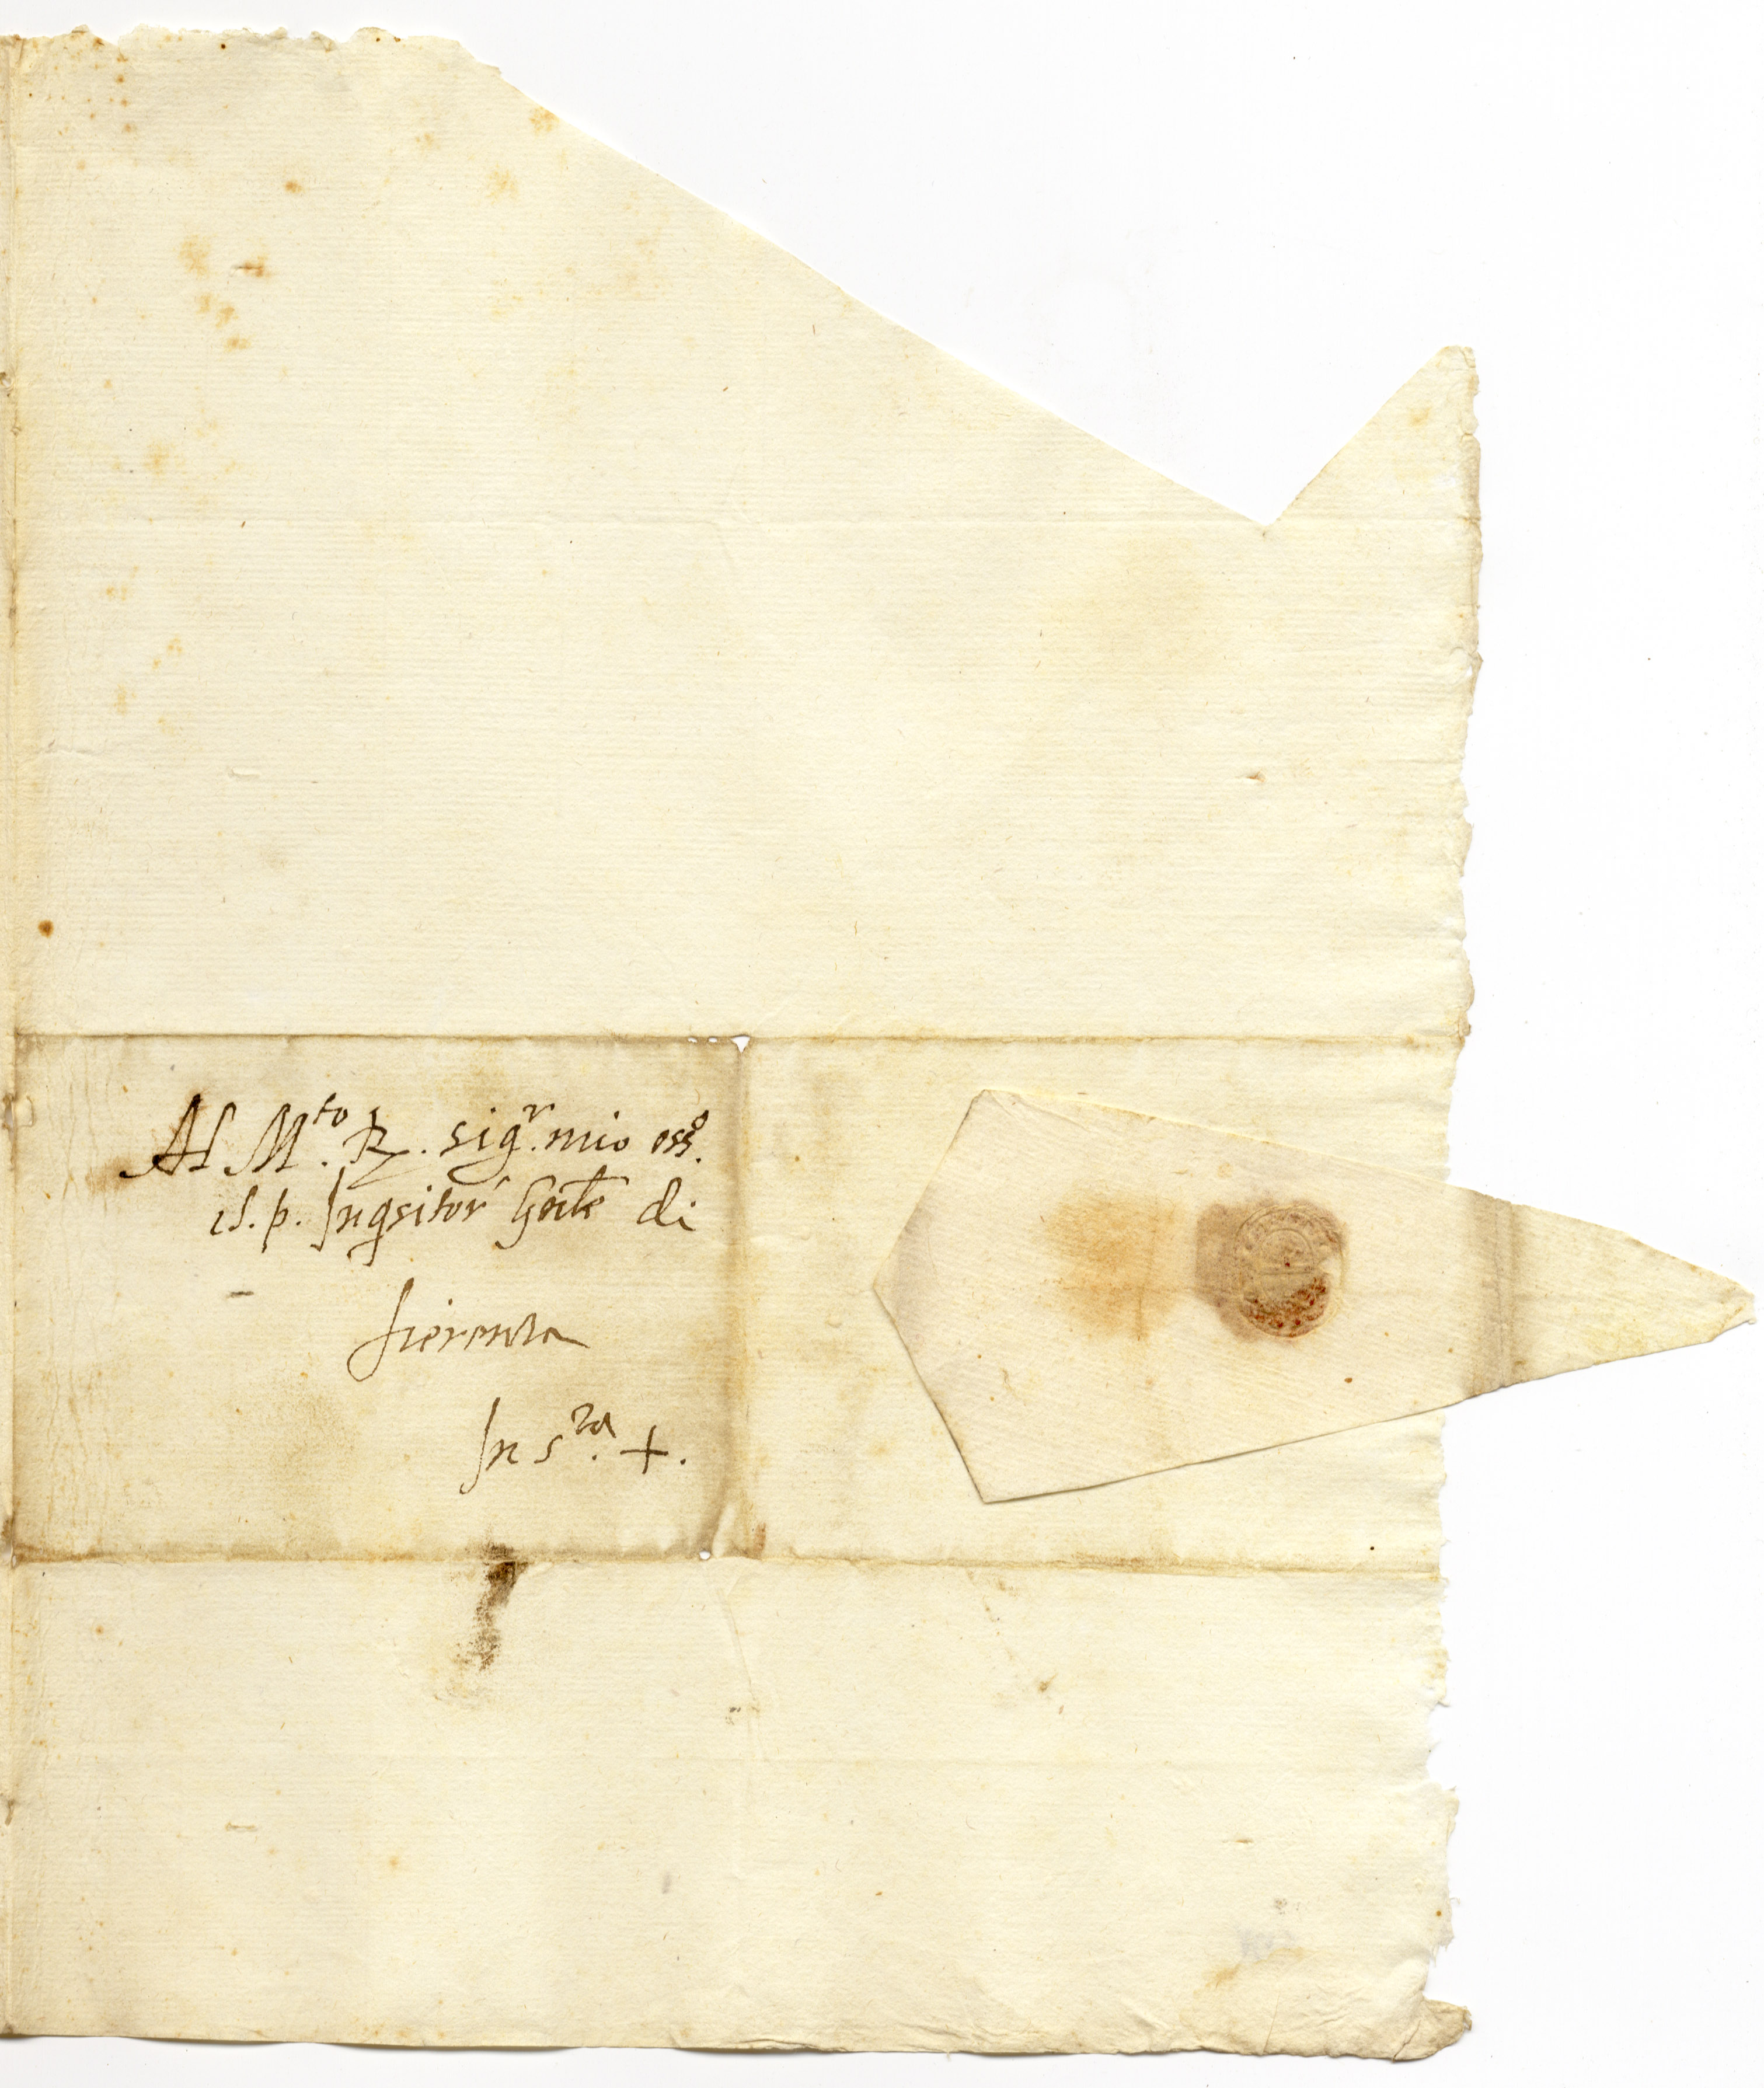 Al M.to R. sig.r mio oss.o
il. p. Inqsitor Gnle di
fiorenza
In s.ta +.